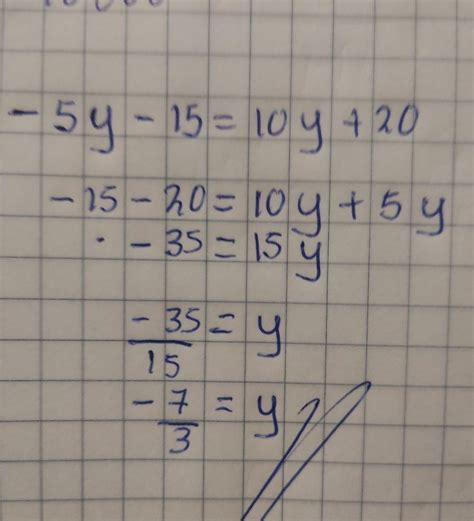 -5y-15=10y+20
-15-20=10y+5y
-35=15y
-35/15=y
-7/3=y